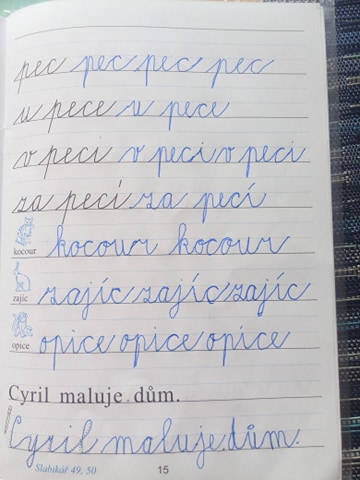 pec pec pec pec
u pece u pece
v peci v peci v peci
za pecí za pecí
kocour kocour kocour
zajíc zajíc zajíc zajíc
opice opice opice opice
Cyril maluje dům.
Cyril maluje dům.
Slabikář 49, 50 15